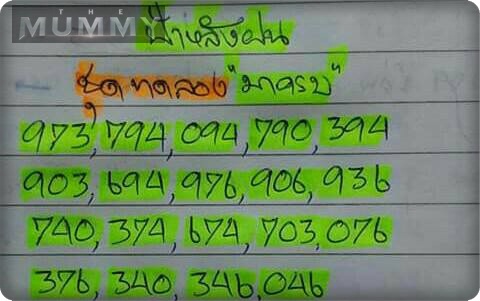 THE
MUMMY
ฟ้าหลังฝน
ชุด ทดลอง "มาครบ"
973, 794, 094, 790, 394
903, 694, 976, 906, 936
740, 374, 674, 703, 076
376, 340, 346, 046